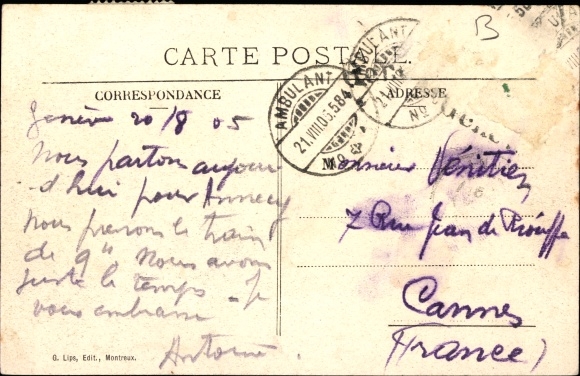 B
CARTE POSTALE.
AMBULANT
AMBULANT
21.VIII.05.584
No
No
CORRESPONDANCE
ADRESSE
Genève 20/8 05
Nous partons aujour
d'hui pour Annecy
nous prenons le train
de 9h Nous avons
juste le temps - Je
vous embrasse
Antoine
Monsieur Vénitien
7 Rue Jean de Riouffe
Cannes
(France)
G. Lips, Edit., Montreux.